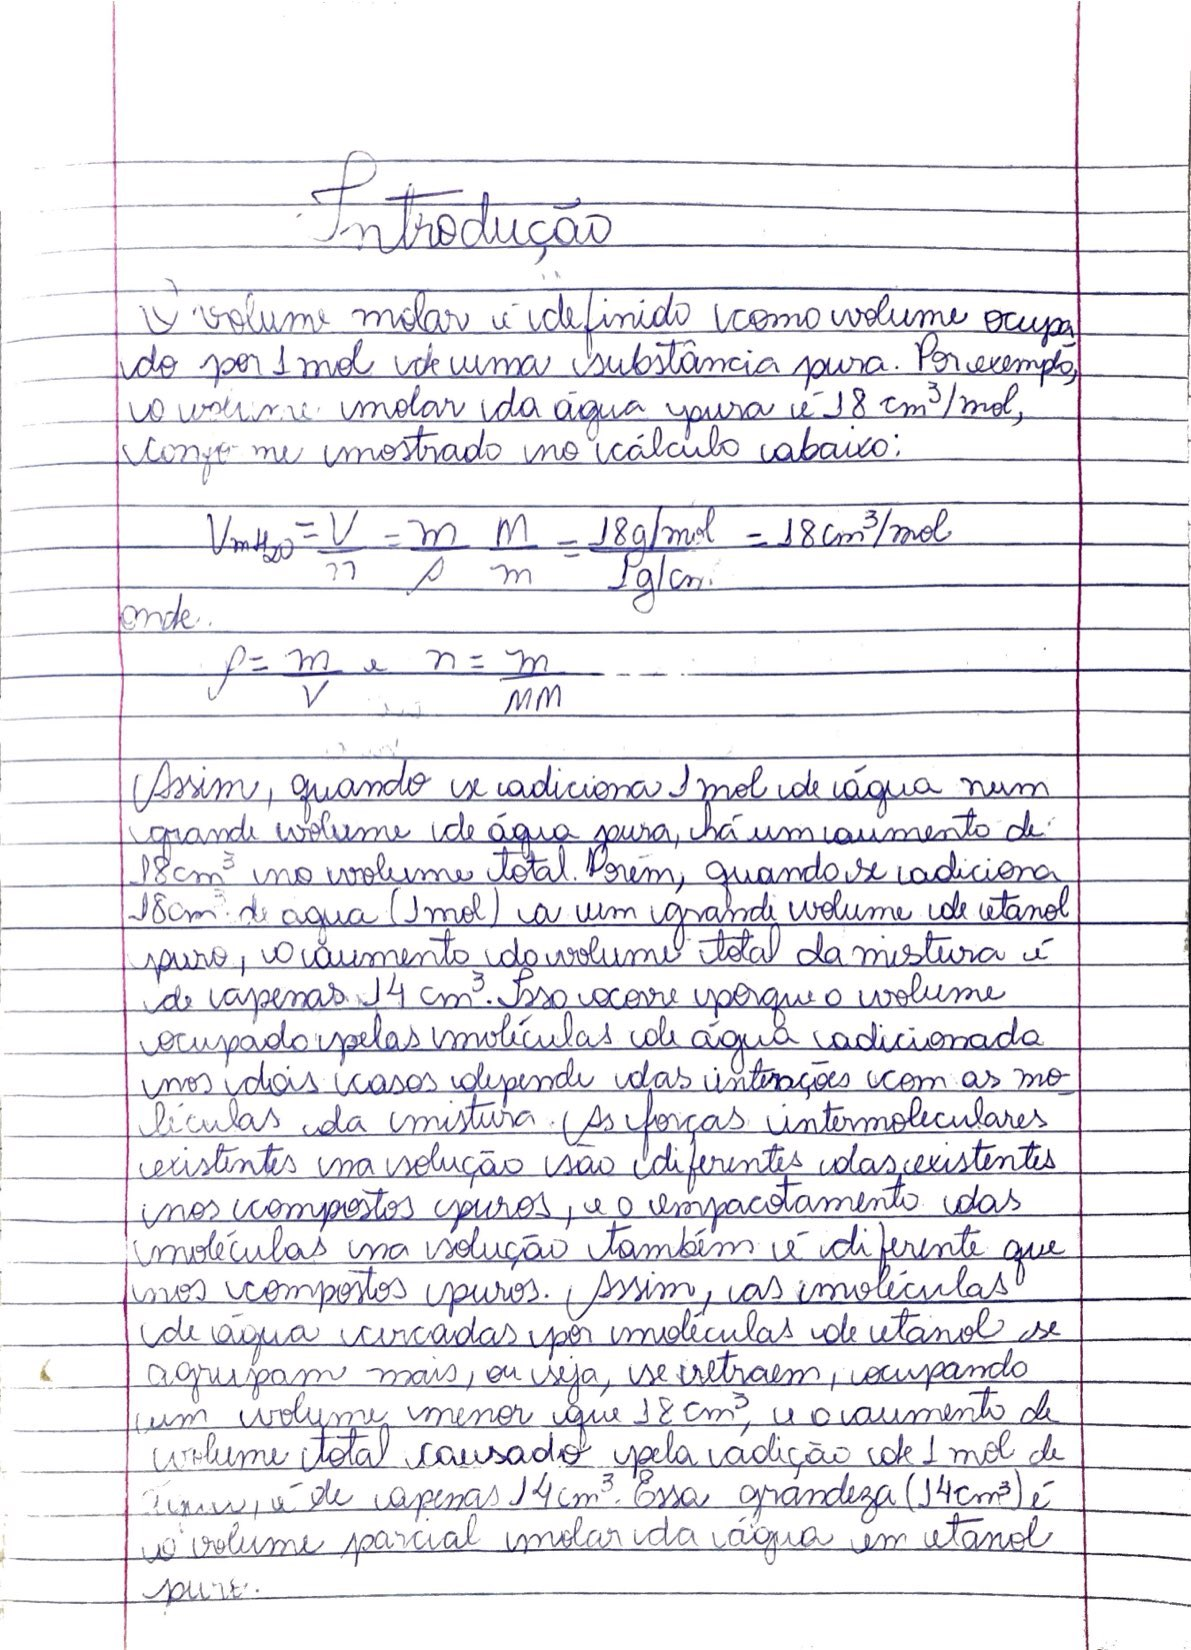 Introdução
O volume molar é definido como volume ocupa
do por 1 mol de uma substância pura. Por exemplo,
o volume molar da água pura é 18 cm³/mol,
conforme mostrado no cálculo abaixo:
VmH₂O = V/n = m/ρ M/m = 18g/mol / 1g/cm = 18cm³/mol
onde
ρ = m/V e n = m/MM
Assim, quando se adiciona 1 mol de água num
grande volume de água pura, há um aumento de
18cm³ no volume total. Porém, quando se adiciona
18cm³ de agua (1mol) a um grande volume de etanol
puro, o aumento do volume total da mistura é
de apenas 14 cm³. Isso ocorre porque o volume
ocupado pelas moléculas de água adicionada
nos dois casos depende das interações com as mo-
léculas da mistura. As forças intermoleculares
existentes na solução são diferentes das existentes
nos compostos puros, e o empacotamento das
moléculas na solução também é diferente que
nos compostos puros. Assim, as moléculas
de água cercadas por moléculas de etanol se
agrupam mais, ou seja, se retraem, ocupando
um volume menor que 18 cm³, e o aumento de
volume total causado pela adição de 1 mol de
é de apenas 14cm³. Essa grandeza (14cm³) é
o volume parcial molar da água em etanol
puro.